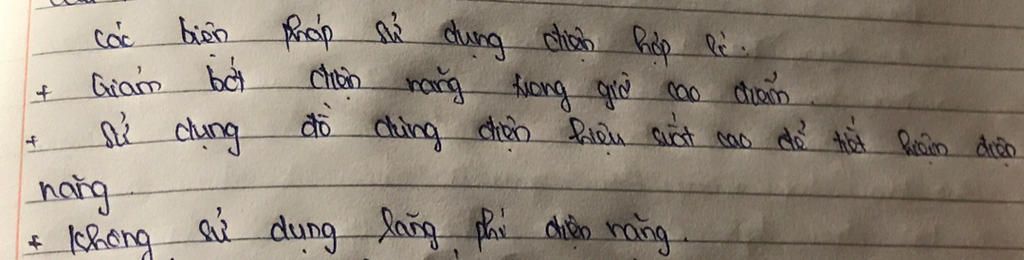 các biện pháp sử dụng điện hợp lí.
+ Giảm bớt điện năng trong giờ cao điểm.
+ sử dụng đồ dùng điện hiệu suất cao để tiết kiệm điện
năng
+ Không sử dụng lãng phí điện năng.